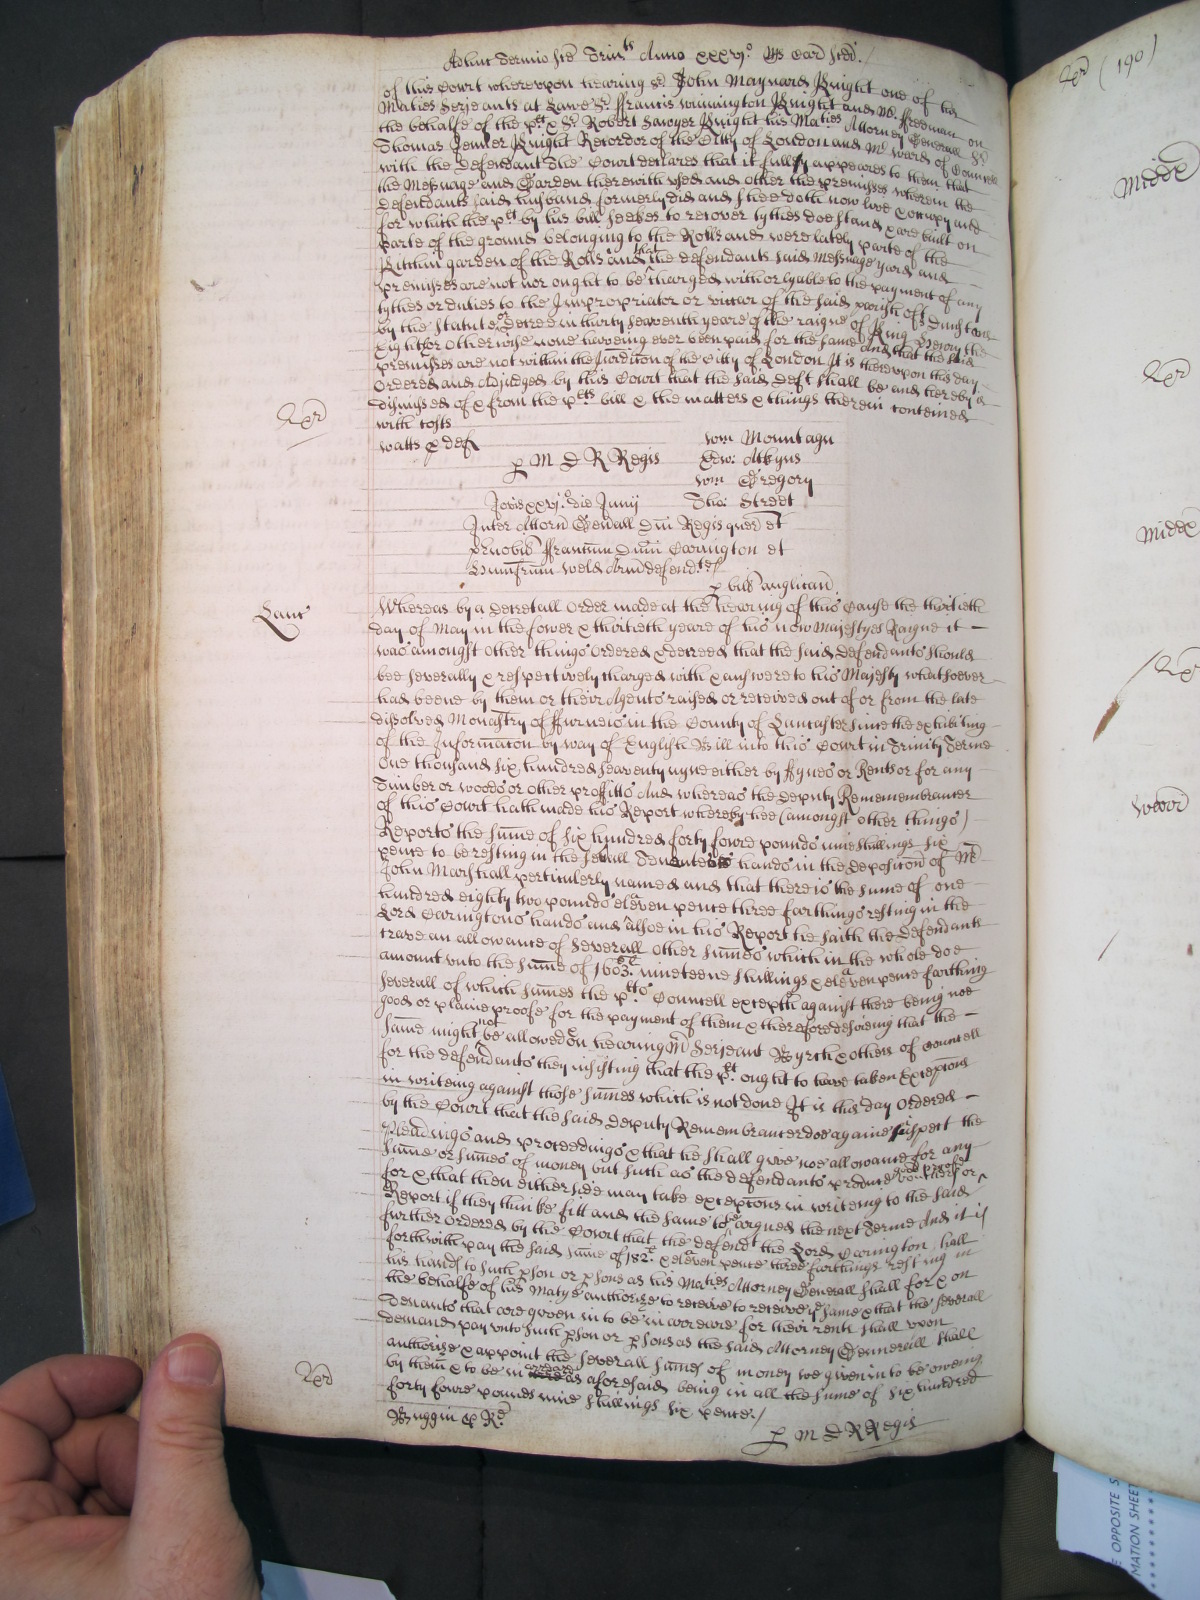 Adhuc Termio Scē Trinitis Anno xxxvjo. Rs Car̄ Scdi./
of this Court whereupon hearing Sr. John Maynard Knight one of his
Maties Serjeants at Lawe Sr. ffrancis Winnington Knight and Mr. ffreeman on
the behalfe of the plt. & Sr Robert Sawyer Knight his Maties Attorney Generall Sr.
Thomas Jenner Knight Recordor of the Citty of London and Mr Ward of Councell
with the Defendant The Court declares that it fully appeares to them that
the Messuage and Garden therewith used and other the premisses wherein the
defendants said husband formerly did and shee doth now live & occupy and
for which the plt by his bill seekes to recover tythes doe stand & are built on
parte of the ground belonging to the Rolls and were lately parte of the
Kitchin garden of the Rolls and that the defendants said Messuage yard and
premisses are not nor ought to be charged with or lyable to the payment of any
tythes or duties to the Impropriator or viccar of the said parish of St Dunstans
by the Statute or decree in thirty seaventh yeare of the raigne of King Henry the
Eight or otherwise none haveing ever been paid for the same And that the said
premisses are not within the Jurisdic̄on of the Citty of London It is thereupon this day
Ordered and Adjudged by this Court that the said Deft shall be and hereby is
dismissed of & from the plts bill & the matters & things therein conteined
with costs
Exr̄
Watts p̄ def
Wm Mountagu
p̄ M D R Regis
Edw: Atkyns
Wm Gregory
Jovis xxvjo. die Junij
Tho: Street
Inter Attorn̄ Gen̄all Dn̄i Regis quer̄ et
p̄nobil̄ ffrancum Dn̄m Carington et
Humfrum Weld Arm̄ defendtes
p̄ bill̄ anglican̄
Lanc̄
Whereas by a Decretall Order made at the hearing of this Cause the thirtieth
day of May in the fower & thirtieth yeare of his now Majestyes Raigne it
was amongst other things ordered & decreed that the said defendants should
bee severally & respectively charged with & answere to his Majesty whatsoever
had beene by them or their Agents raised or received out of or from the late
dissolved Monastry of ffurneis in the County of Lancaster since the exhibiting
of the Informac̄on by way of English Bill into this Court in Trinity Terme
One thousand six hundred seaventy nyne either by ffynes or Rents or for any
Timber or woods or other proffitts And whereas the deputy Remembrancer
of this Court hath made his Report whereby hee (amongst other things)
Reports the sume of six hundred forty fowre pounds nine shillings six
pence to be resting in the sev̄all Tenants hands in the deposic̄on of Mr.
John Marshall perticulerly named and that there is the sume of one
hundred eighty two pounds eleaven pence three farthings resting in the
Lord Caringtons hands and alsoe in his Report he saith the defendants
crave an allowance of severall other sumes which in the whole doe
amount unto the sume of 1603l. nineteene shillings & eleaven pence farthing
severall of which sumes the plts Councell excepth against there being noe
good or plaine proofe for the payment of them & therefore desireing that the
same might not be allowed on heareing Mr Serjeant Byrch & others of councell
for the defendants they insisting that the plt. ought to have taken Excepc̄ons
in writeing against those sumes which is not done It is this day Ordered
by the Court that the said Deputy Remembrancer doe againe inspect the
Pleadings and proceedings & that he shall give noe allowance for any
sume or sumes of money but such as the defendants produce good proofs vouchers or
for & that then either side may take excepc̄ons in writeing to the said
Report if they thinke fitt and the same to be argued the next Terme And it is
further Ordered by the Court that the defendt the Lord Carington shall
forthwith pay the said sume of 182l. & eleaven pence three farthings resting in
his hands to such p̄son or p̄sons as his Maties Attorney Generall shall for & on
the behalfe of his Matye authorise to receive to receive ye same & that the severall
Tenants that are given in to be in arreare for their rents shall upon
demand pay unto such p̄son or p̄sons as the said Attorney Gennerall shall
authorise & appoint the severall sumes of money soe given in to be oweing
by them & to be in arreare as aforesaid being in all the sume of six hundred
Exr̄
forty fowre pounds nine shillings six pence./
Buggin p̄ Re
p̄ M D R Regis
Exr̄ (190)
Midđx
Exr̄
Midđx
Exr̄
OPPOSITE S
MATION SHEET